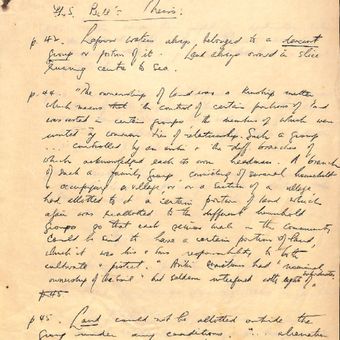 F.L.S. Bell's Thesis.
p. 42. Lagoon waters always belonged to a
group or portion of it. Land always owned in slice
running centre to sea.
p. 44. "The ownership of land was a kinship matter
which means that the control of certain portions of land
was vested in certain groups the members of which were
united by common ties of relationship. Such a group
... controlled by an ariki & the diff. branches of
which acknowledged each its own headman. A branch
of such a family group, consisting of several households
& occupying a village, or a section of a village
had allotted to it a certain portion of land which
again was reallotted to the different household
groups so that each person in the community
could be said to have a certain portion of land,
which it was his own responsibility to both
cultivate & protect." Ariki sometimes had "nominal
ownership of the soil" but seldom interfered with rights of
p 45
p 45. Land could not be allotted outside the
group under any conditions. "... alienation